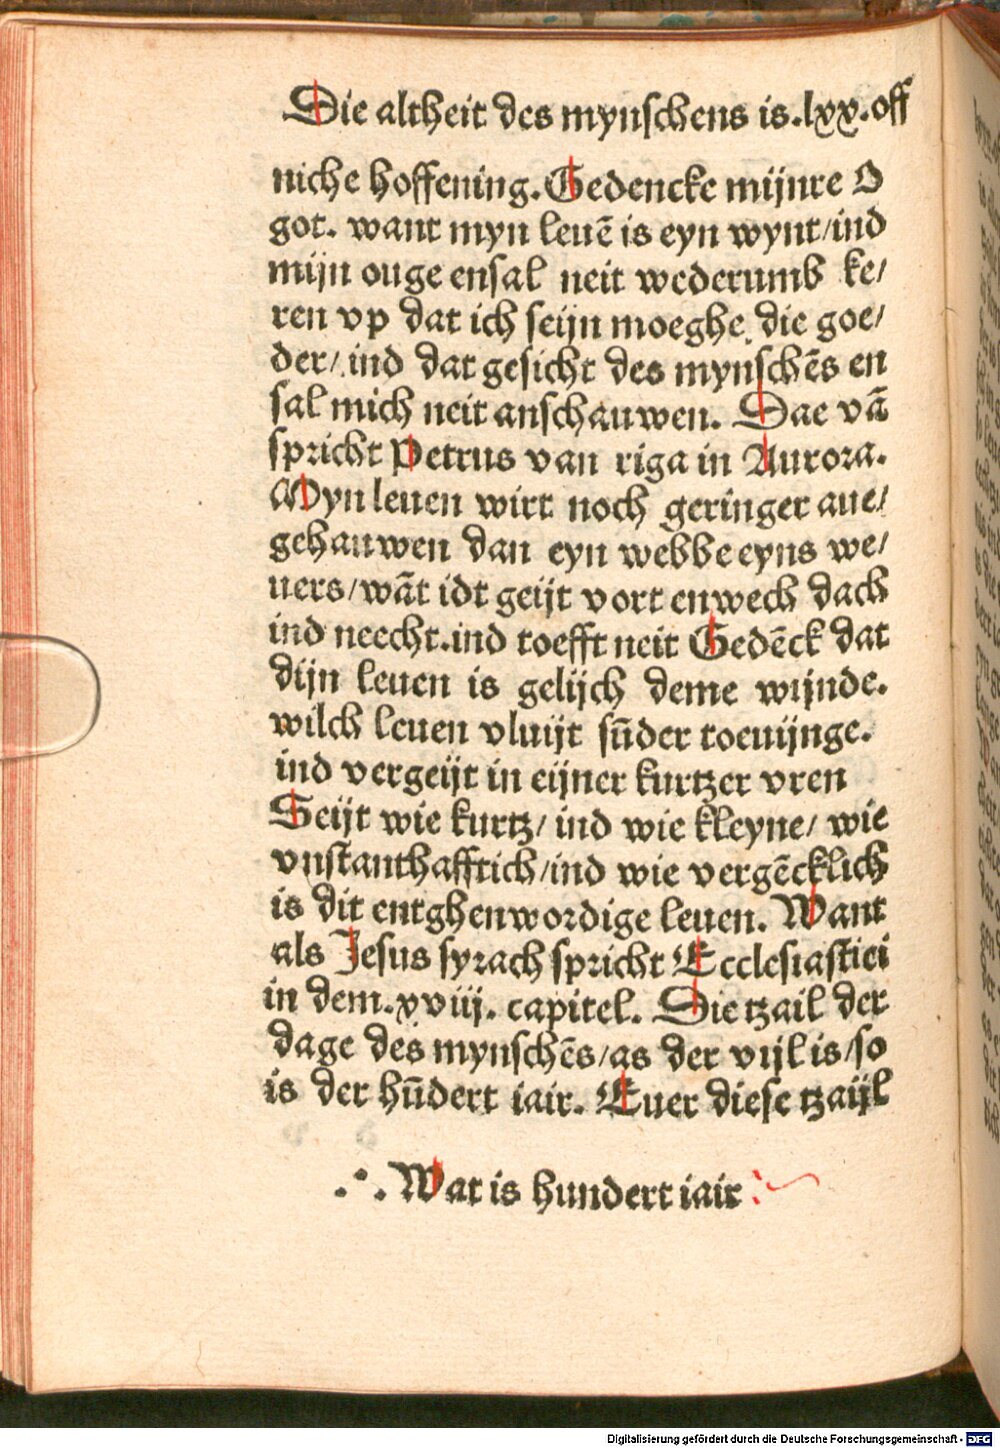 Die altheit des mynschens is.lxx.off
niche hoffening. Gedencke mijnre O
got. want myn leuē is eyn wynt/ind
mijn ouge ensal neit wederumb ke/
ren vp dat ich seijn moeghe die goe/
der/ ind dat gesicht des mynschēs en
sal mich neit anschauwen. Dae vā
spricht Petrus van riga in Aurora.
Myn leuen wirt noch geringer aue/
gehauwen dan eyn webbe eyns we/
uers/wāt idt geijt vort enwech dach
ind neecht.ind toefft neit Gedēck dat
dijn leuen is gelijch deme wijnde.
wilch leuen vluijt sūder toeuijnge.
ind vergeijt in eijner kurtzer vren
Seijt wie kurtz/ ind wie kleyne/ wie
vnstanthafftich/ind wie vergēcklich
is dit entghenwordige leuen. Want
als Jesus syrach spricht Ecclesiastici
in dem.xviij. capitel. Die tzail der
dage des mynschēs/as der vijl is/so
is der hūdert iair. Euer diese tzaijl
.·. Wat is hundert iair
Digitalisierung gefördert durch die Deutsche Forschungsgemeinschaft - DFG